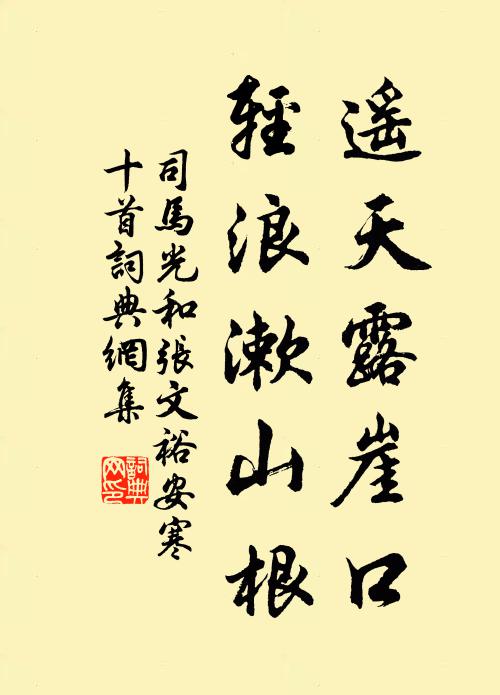 遥天露崖口
輕浪漱山根
司馬光和張文裕安寒
十首詞典網集
詞典網印